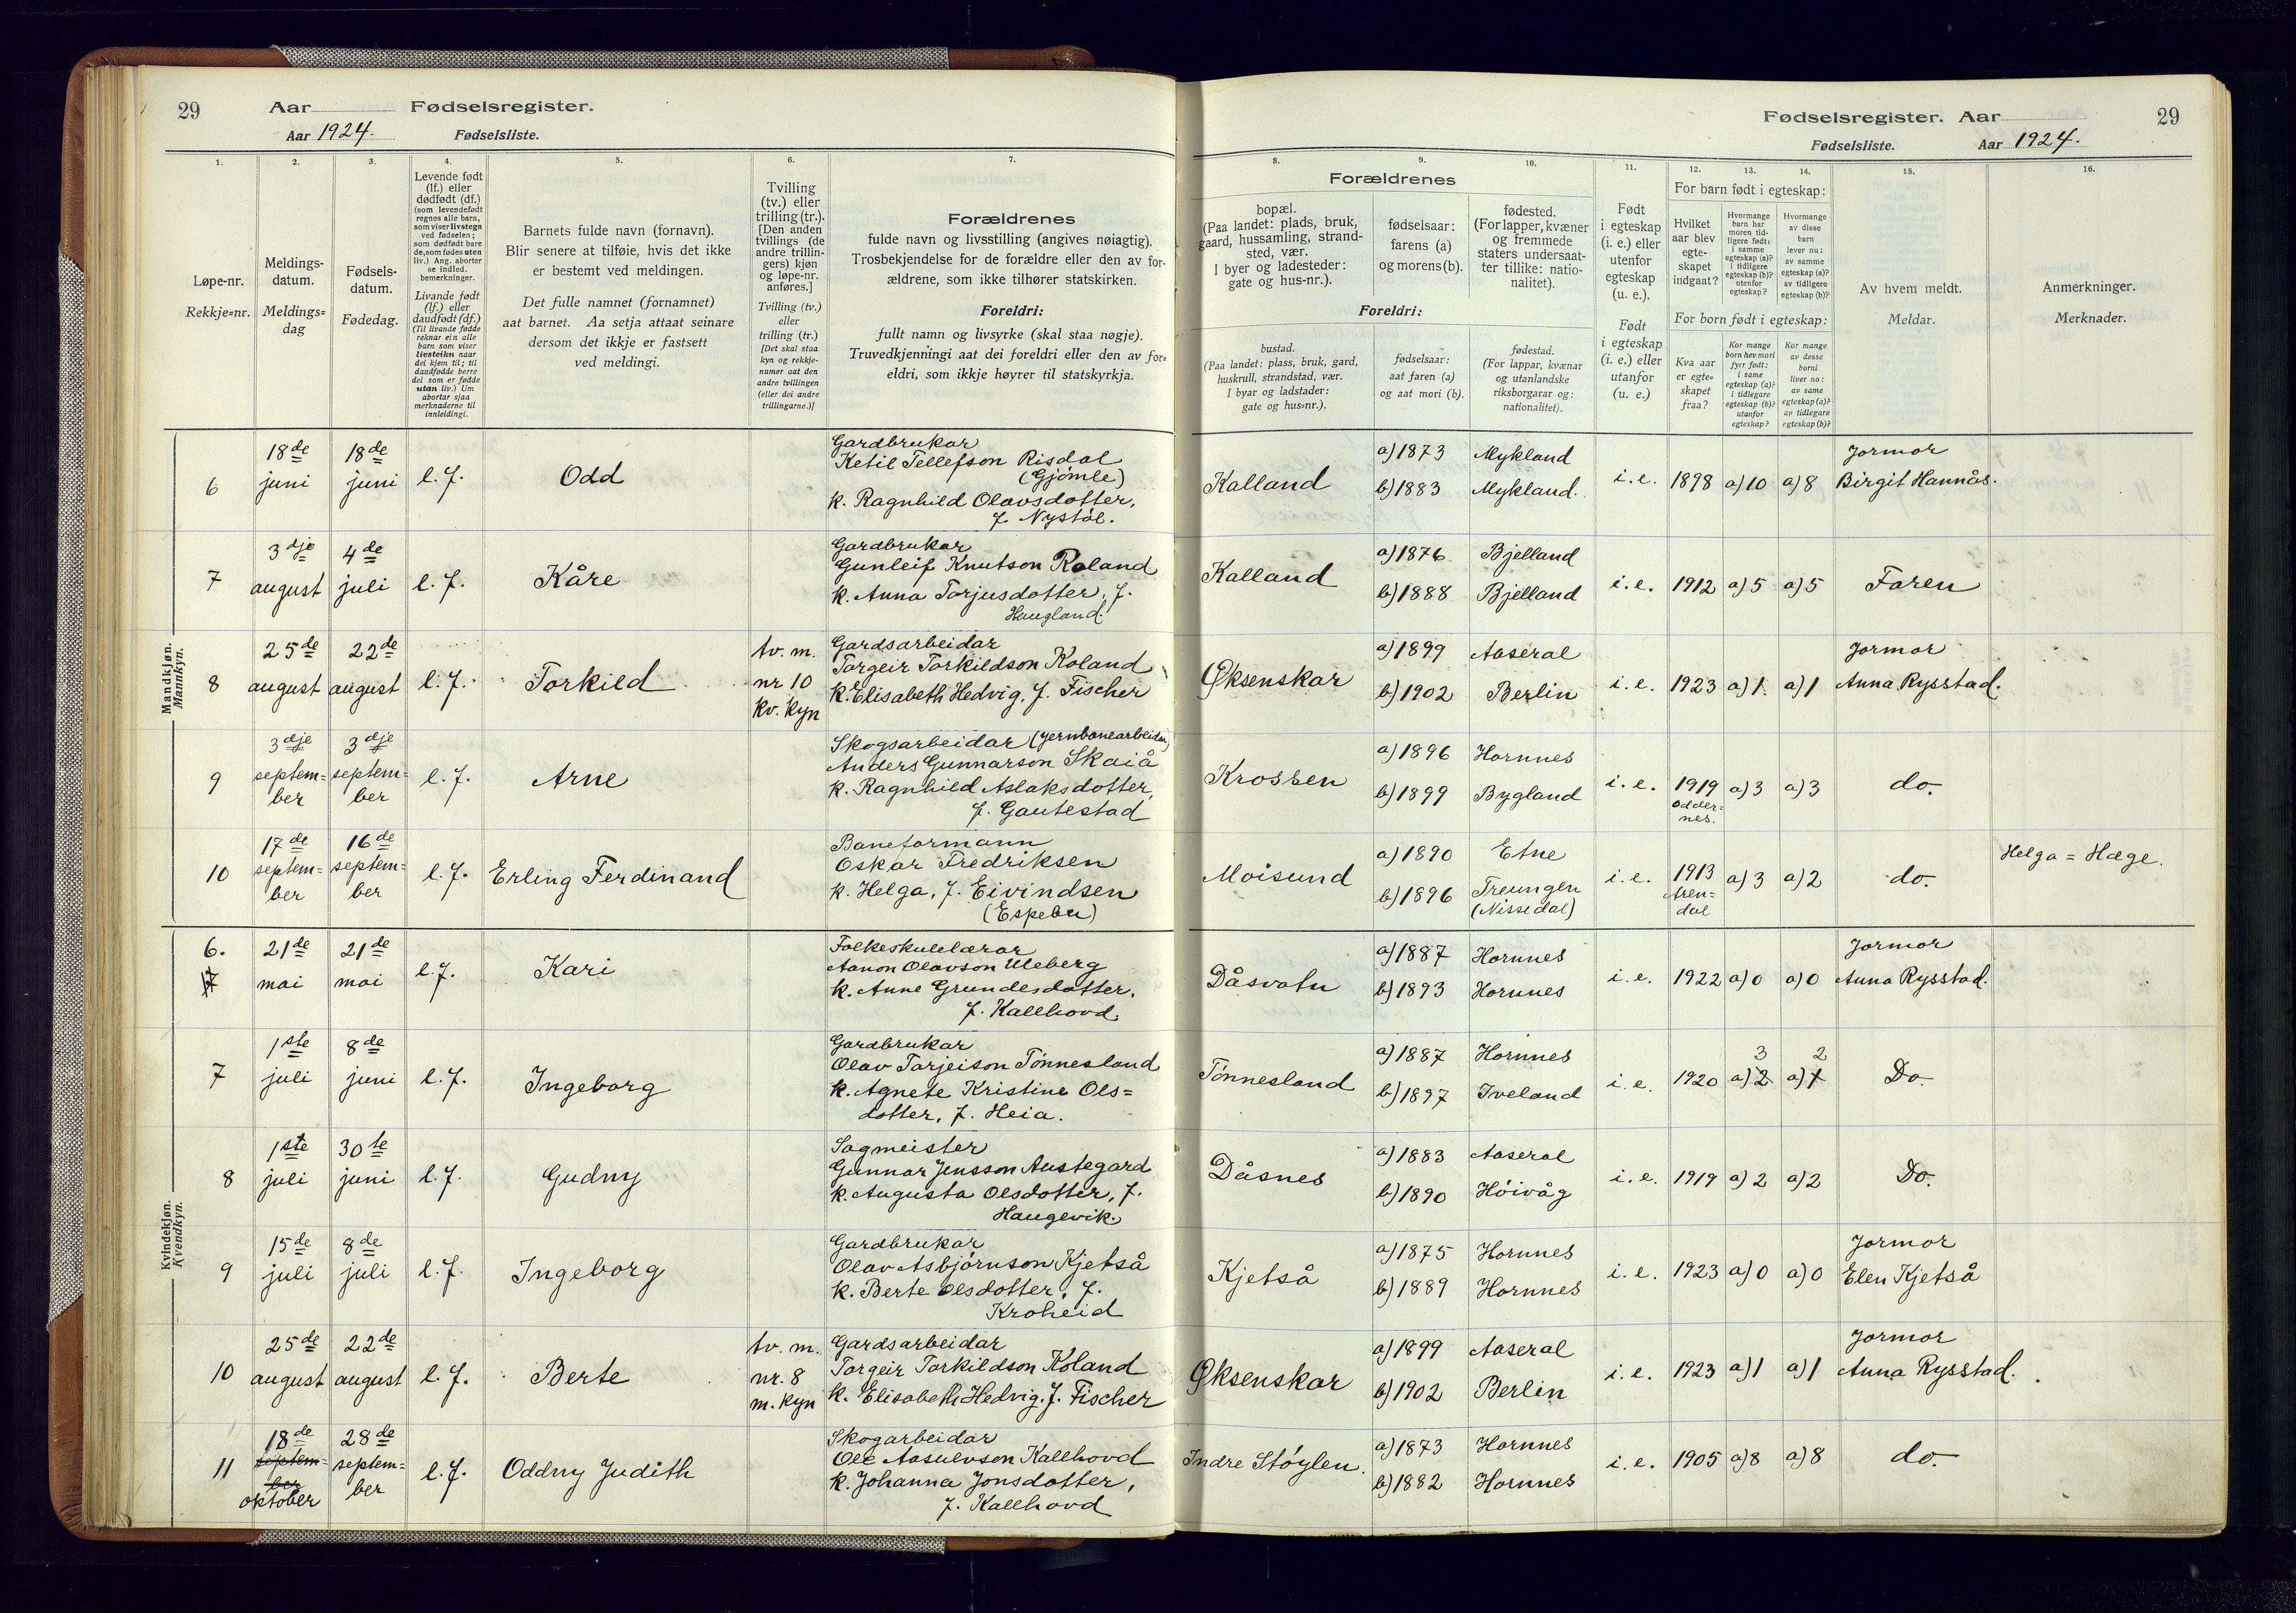 29
Aar
Fødselsregister.
Aar 1924.
Fødselsliste.
1.
2.
3.
4.
5.
6.
7.
Løpe-nr.
Rekkje=nr.
Meldings-
datum.
Meldings=
dag
Fødsels-
datum.
Fødedag.
Levende født
(lf.) eller
dødfødt (df.)
(som levendefødt
regnes alle barn,
som viser livstegn
ved fødselen;
som dødfødt bare
de, som fødes uten
liv.) Ang. aborter
se indled.
bemerkninger.
Livande født
(lf.) eller
daudfødt (df.)
(Til livande fødde
reknar ein alle
barn som viser
livsteikn naar
dei kjem til; til
daudfødde berre
dei som er fødde
utan liv.) Um
abortar sjaa
merknaderne til
innleidingi.
Barnets fulde navn (fornavn).
Blir senere at tilføie, hvis det ikke
er bestemt ved meldingen.
Det fulle namnet (fornamnet)
aat barnet. Aa setja attaat seinare
dersom det ikkje er fastsett
ved meldingi.
Tvilling
(tv.) eller
trilling (tr.).
[Den anden
tvillings (de
andre trillin-
gers) kjøn
og løpe-nr.
anføres.]
Tvilling (tv.)
eller
trilling (tr.)
[Det skal staa
kyn og rekkje-
numer aat den
andre tvillingen
(eller dei andre
trillingarne.)]
Forældrenes
fulde navn og livsstilling (angives nøiagtig).
Trosbekjendelse for de forældre eller den av for-
ældrene, som ikke tilhører statskirken.
Foreldri:
fullt namn og livsyrke (skal staa nøgje).
Truvedkjenningi aat dei foreldri eller den av for-
eldri, som ikkje høyrer til statskyrkja.
Mandkjøn.
Mannkyn.
6
18de
juni
18de
juni
l. f.
Odd
Gardbrukar
Ketil Tellefson Risdal
(Gjömle)
k. Ragnhild Olavsdotter,
f. Nystöl.
7
3dje
august
4de
juli
l. f.
Kåre
Gardbrukar
Gunleif Knutson Roland
k. Anna Torjusdotter, f.
Haugland.
8
25de
august
22de
august
l. f.
Torkild
tv. m.
nr 10
kv. kyn
Gardsarbeidar
Torgeir Torkildson Koland
k. Elisabeth Hedvig, f. Fischer
9
3dje
septem=
ber
3dje
septem=
ber
l. f.
Arne
Skogsarbeidar (jernbanearbeidar)
Anders Gunnarson Skaiå
k. Ragnhild Aslaksdotter,
f. Gautestad
10
17de
septem=
ber
16de
septem=
ber
l. f.
Erling Ferdinand
Baneformann
Oskar Fredriksen
k. Helga, f. Eivindsen
(Espebu)
Kvindekjøn.
Kvendkyn.
6.
7
21de
mai
21de
mai
l. f.
Kari
Folkeskulelærar
Aanon Olavson Uleberg
k. Anne Grundesdotter,
f. Kallhovd.
7
1ste
juli
8de
juni
l. f.
Ingeborg
Gardbrukar
Olav Tarjeison Tönnesland
k. Agnete Kristine Ols=
dotter, f. Heia.
8
1ste
juli
30te
juni
l. f.
Gudny
Sagmeister
Gunnar Jensson Austegard
k. Augusta Olsdotter, f.
Haugevik.
9
15de
juli
8de
juli
l. f.
Ingeborg
Gardbrukar
Olav Asbjörnson Kjetså
k. Berte Olsdotter, f.
Kroheid
10
25de
august
22de
august
l. f.
Berte
tv. m.
nr. 8
m. kyn
Gardsarbeidar
Torgeir Torkildson Koland
k. Elisabeth Hedvig. f. Fischer
11
18de
septem=
ber
oktober
28de
septem=
ber
l. f.
Oddny Judith
Skogarbeidar
Ole Aasulvson Kallhovd
k. Johanna Jonsdotter,
f. Kallhovd
Fødselsregister. Aar
29
Fødselsliste.
Aar 1924.
8.
9.
10.
11.
12.
13.
14.
15.
16.
Forældrenes
bopæl.
(Paa landet: plads, bruk,
gaard, hussamling, strand-
sted, vær.
I byer og ladesteder:
gate og hus-nr.).
fødselsaar:
farens (a)
og morens (b).
fødested.
(For lapper, kvæner
og fremmede
staters undersaat-
ter tillike: natio-
nalitet).
Foreldri:
bustad.
(Paa landet: plass, bruk, gard,
huskrull, strandstad, vær.
I byar og ladstader:
gate og hus=nr.).
fødselsaar:
aat faren (a)
og aat mori (b).
fødestad.
(For lappar, kvænar
og utanlandske
riksborgarar og:
nationalitet).
Født
i egteskap
(i. e.) eller
utenfor
egteskap
(u. e.).
Født
i egteskap
(i. e.) eller
utanfor
(u. e.)
For barn født i egteskap:
Hvilket
aar blev
egte-
skapet
indgaat?
Hvormange
barn har
moren tid-
ligere født:
i samme
egteskap (a)?
i tidligere
egteskap (b)?
utenfor
egteskap?
Hvormange
av disse
barn
lever nu:
av samme
egteskap (a)?
av tidligere
egteskap (b)?
For born født i egteskap:
Kva aar
er egte-
skapet
fraa?
Kor mange
born hev mori
fyrr født:
i same
egteskap (a)?
i tidlegare
egteskap (b)?
utanfor
egteskap?
Kor mange
av desse
borni
liver no:
av same
egteskap (a)?
av tidlegare
egteskap (b)?
Av hvem meldt.
Meldar.
Anmerkninger.
Merknader.
Kalland
a) 1873
b) 1883
Mykland
Mykland.
i. e.
1898
a) 10
a) 8
Jormor
Birgit Hannås.
Kalland
a) 1876
b) 1888
Bjelland
Bjelland
i. e.
1912
a) 5
a) 5
Faren
Øksenskar
a) 1899
b) 1902
Aaseral
Berlin
i. e.
1923
a) 1.
a) 1
Jormor
Anna Rysstad.
Krossen
a) 1896
b) 1899
Hornnes
Bygland
i. e.
1919
Odder=
nes.
a) 3
a) 3
do.
Moisund
a) 1890
b) 1896
Etne
Treungen
(Nissedal)
i. e.
1913
Aren=
dal
a) 3
a) 2
do.
Helga = Hæge.
Dåsvatn
a) 1887
b) 1893
Hornnes
Hornnes
i. e.
1922
a) 0
a) 0
Jormor
Anna Rysstad.
Tönnesland
a) 1887
b) 1897
Hornnes
Iveland
i. e.
1920
3
a) 2
2
a) 1
Do.
Dåsnes
a) 1883
b) 1890
Aaseral
Höivåg
i. e.
1919
a) 2
a) 2
Do.
Kjetså
a) 1875
b) 1889
Hornnes
Hornnes
i. e.
1923
a) 0
a) 0
Jormor
Elen Kjetså
Øksenskar
a) 1899
b) 1902
Aaseral
Berlin
i. e.
1923
a) 1
a) 1
Jormor
Anna Rysstad.
Indre Stöylen.
a) 1873
b) 1882
Hornnes
Hornnes
i. e.
1905
a) 8
a) 8
do.